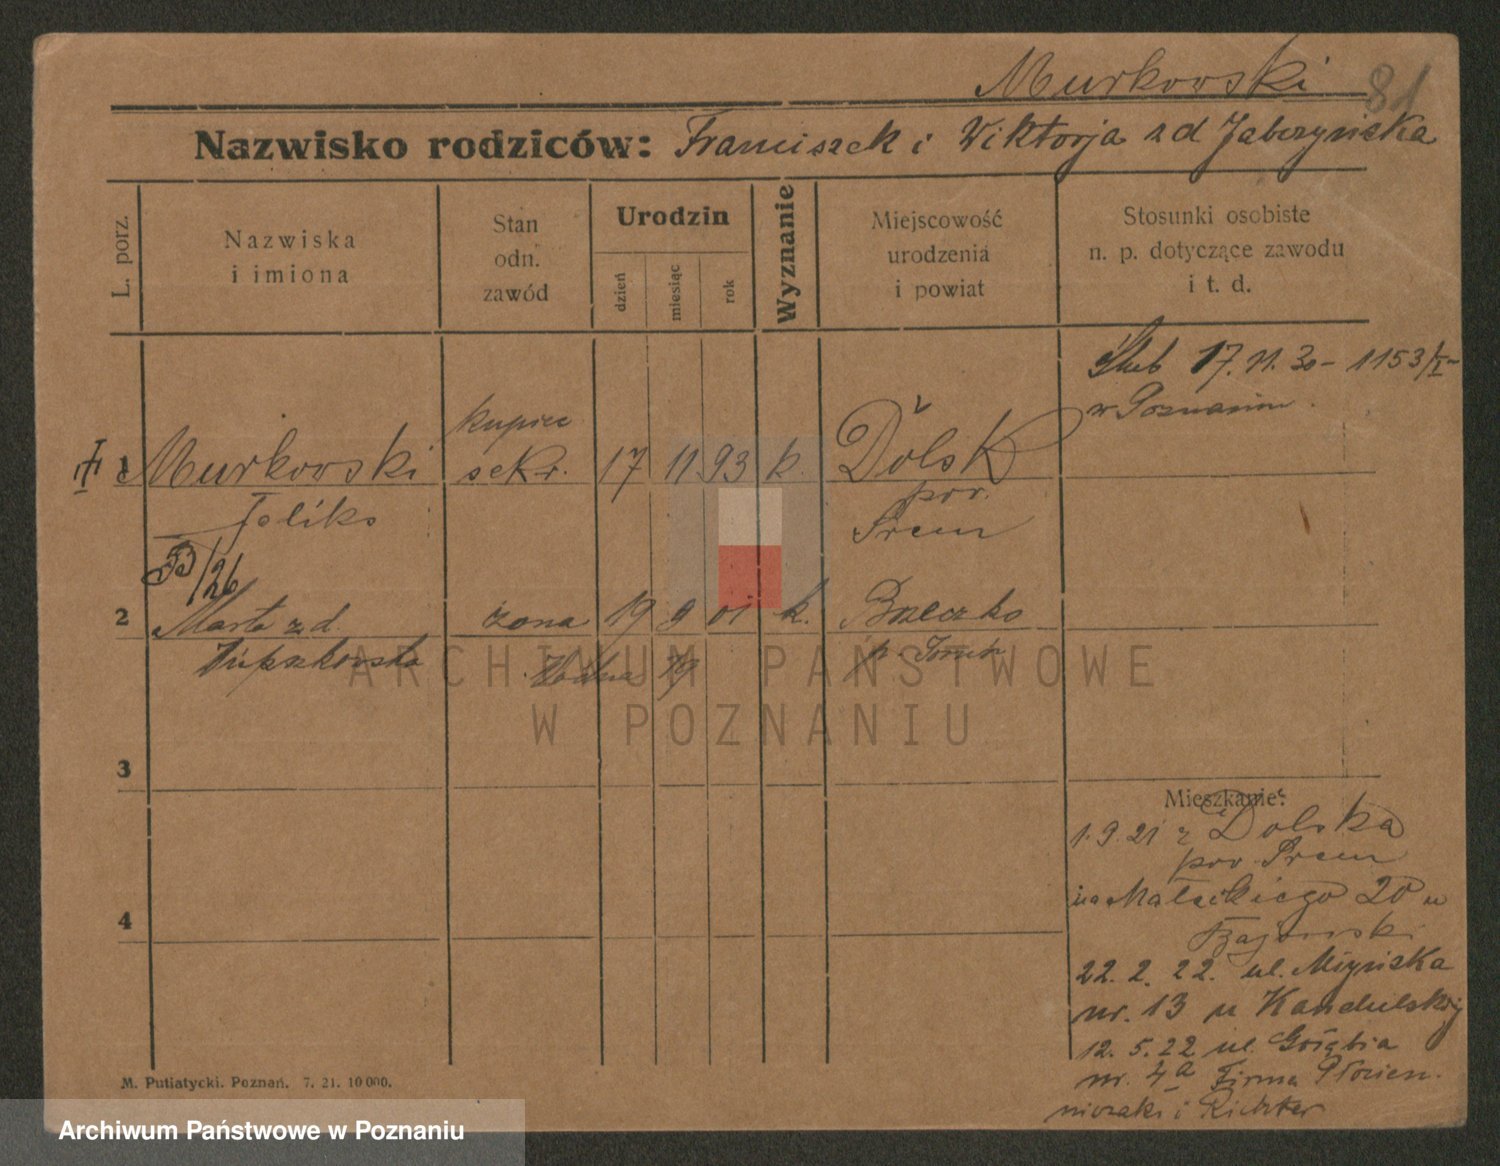 Murkowski 81
Nazwisko rodziców: Franciszek i Wiktorja z d Jabczyńska
L. porz.
Nazwiska
i imiona
Stan
odn.
zawód
Urodzin
dzień
miesiąc
rok
Wyznanie
Miejscowość
urodzenia
i powiat
Stosunki osobiste
n. p. dotyczące zawodu
i t. d.
Ślub 17.11.30 - 1153/I
w Poznaniu
kupiec
1 Murkowski sekr. 17 11 93 k. Dolsk
Feliks pow.
Śrem
B/26
2 Marta z d. żona 19 9 01 k.
p.
ARCHIWUM PAŃSTWOWE
W POZNANIU
3
Mieszkanie:
1.9.21 z Dolska
pow Śrem
na Małeckiego 20 u
22.2.22. ul. Młyńska
nr. 13 u Kandulskiej
12.5.22 ul. Gołębia
nr. 4a Firma
i Richter
4
M. Putiatycki. Poznań. 7. 21. 10 000.
Archiwum Państwowe w Poznaniu